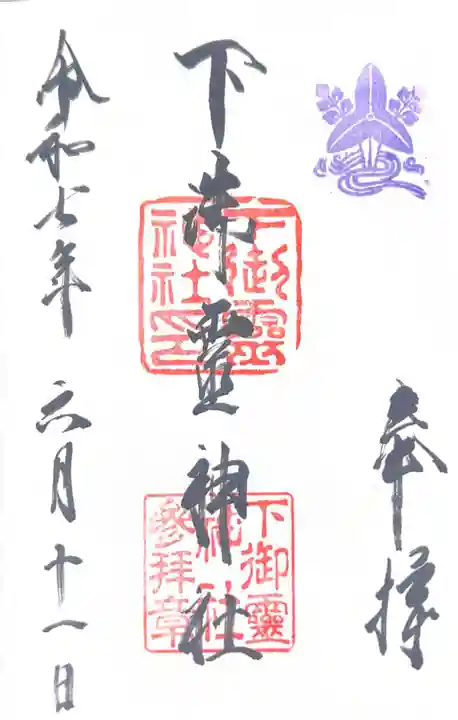 奉拝
下御靈神社
下御靈神社印
下御靈神社参拝章
令和七年 六月十一日